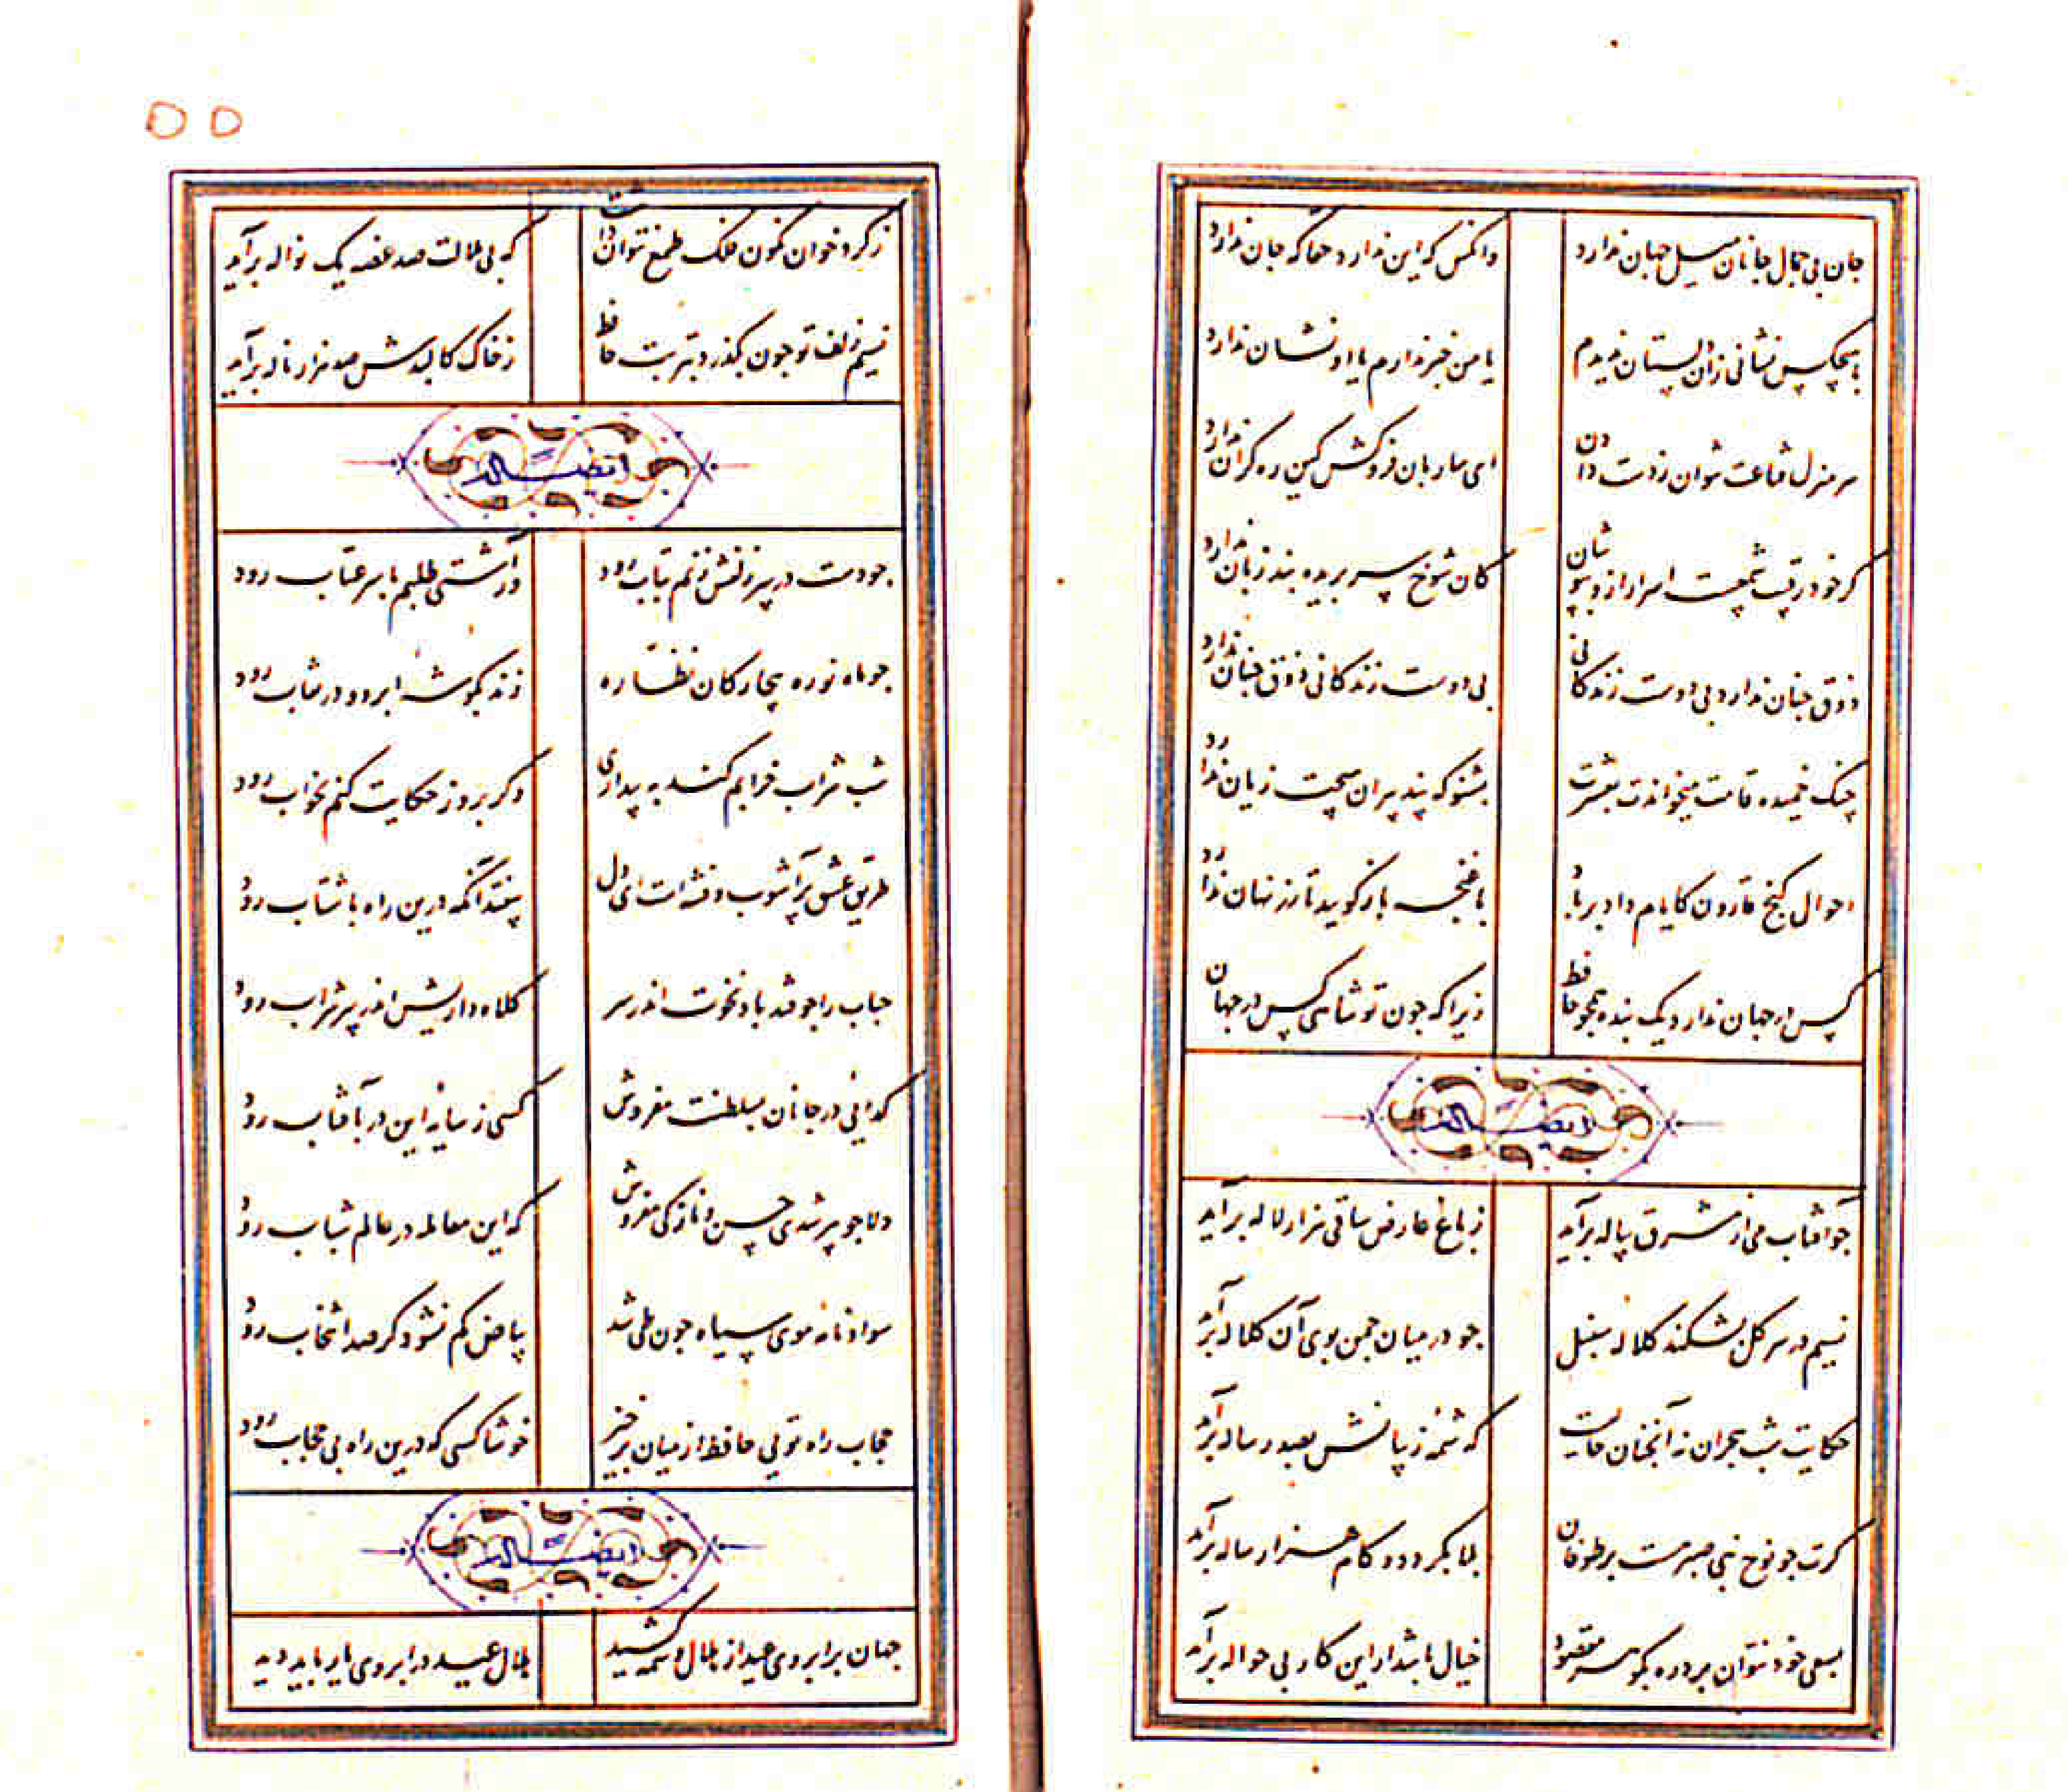 جان بی جمال جانان میل جهان ندارد
وانکس که این ندارد حقا که جان ندارد
با هیچکس نشانی زان دلستان ندیدم
یا من خبر ندارم یا او نشان ندارد
سر منزل قناعت نتوان ز دست دادن
ای ساربان فروکش کین ره کران ندارد
گر خود رقیب شمعست اسرار ازو بپوشان
کان شوخ سر بریده بند زبان ندارد
ذوق چنان ندارد بی دوست زندگانی
بی دوست زندگانی ذوق چنان ندارد
چنگ خمیده قامت میخواندت بعشرت
بشنو که پند پیران هیچت زیان ندارد
احوال گنج قارون کایام داد بر باد
با غنچه باز گویید تا زر نهان ندارد
کس در جهان ندارد یک بنده همچو حافظ
زیرا که چون تو شاهی کس در جهان
ایضاً له
چو آفتاب می از مشرق پیاله برآید
ز باغ عارض ساقی هزار لاله برآید
نسیم در سر گل بشکند کلاله سنبل
چو در میان چمن بوی آن کلاله برآید
حکایت شب هجران نه آنچنان حالیست
که شمهٔ ز بیانش بصد رساله برآید
گرت چو نوح نبی صبر هست بر طوفان
بلا بگردد و کام هزار ساله برآید
بسعی خود نتوان برد ره بگوهر مقصود
خیال باشد ار این کار بی حواله برآید
ز گرد خوان نگون فلک طمع نتوان داشت
که بی ملالت صد غصه یک نواله برآید
نسیم زلف تو چون بگذرد بتربت حافظ
ز خاک کالبدش صد هزار ناله برآید
ایضاً له
چو دست در سر زلفش زنم بتاب رود
ور آشتی طلبم با سر عتاب رود
چو ماه نو ره بیچارگان نظاره
زند بگوشه ابرو و در نقاب رود
شب شراب خرابم کند به بیداری
وگر بروز حکایت کنم بخواب رود
طریق عشق پرآشوب و فتنه است ای دل
بیفتد آنکه درین راه با شتاب رود
حباب را چو فتد باد نخوت اندر سر
کلاه داریش اندر سر شراب رود
گدایی در جانان بسلطنت مفروش
کسی ز سایهٔ این در بآفتاب رود
دلا چو پیر شدی حسن و نازکی مفروش
که این معامله در عالم شباب رود
سواد نامه موی سیاه چون طی شد
بیاض کم نشود گر صد انتخاب رود
حجاب راه تویی حافظ از میان برخیز
خوشا کسی که درین راه بی حجاب رود
ایضاً له
جهان بر ابروی عید از هلال وسمه کشید
هلال عید در ابروی یار باید دید